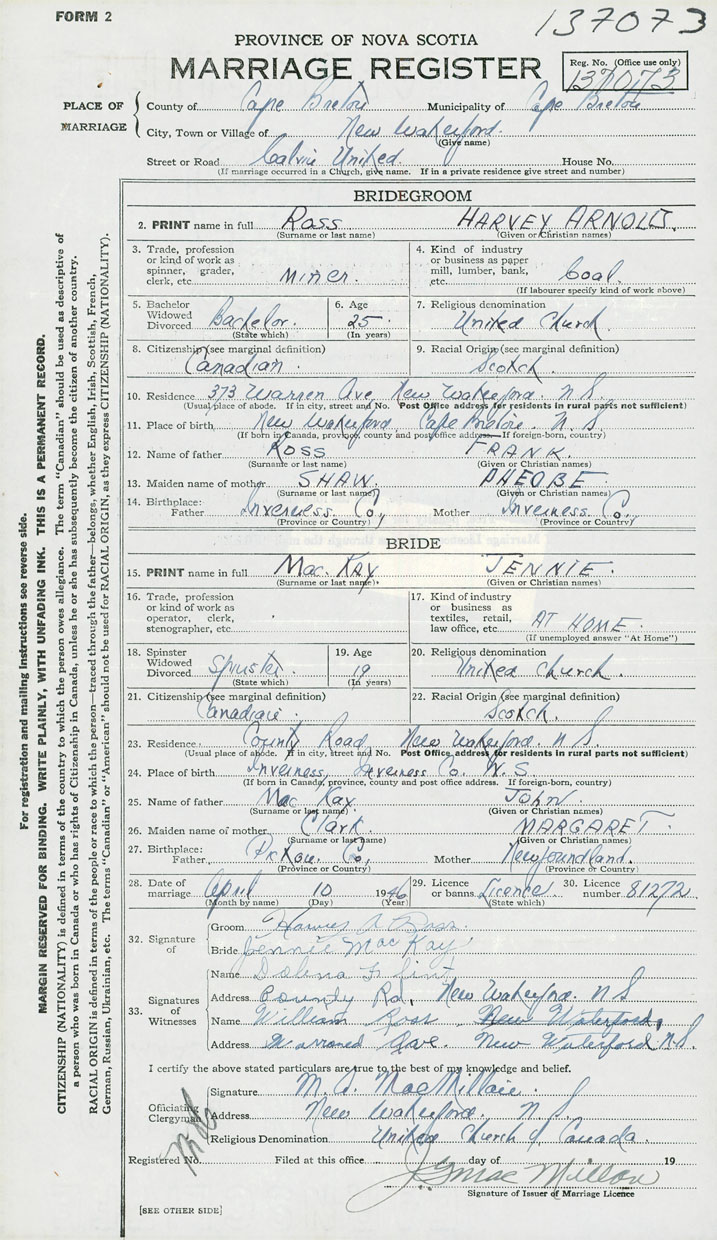 FORM 2
137073
PROVINCE OF NOVA SCOTIA
MARRIAGE REGISTER
Reg. No. (Office use only)
137073
PLACE OF MARRIAGE
County of Cape Breton Municipality of Cape Breton
City, Town or Village of New Waterford.
(Give name)
Street or Road Calvin United House No.
(If marriage occurred in a Church, give name. If in a private residence give street and number)
BRIDEGROOM
2. PRINT name in full Ross HARVEY ARNOLD.
(Surname or last name) (Given or Christian names)
3. Trade, profession or kind of work as spinner, grader, clerk, etc. Miner.
4. Kind of industry or business as paper mill, lumber, bank, etc. Coal.
(If labourer specify kind of work above)
5. Bachelor Widowed Divorced Bachelor.
(State which)
6. Age 25
(In years)
7. Religious denomination United Church.
8. Citizenship (see marginal definition) Canadian.
9. Racial Origin (see marginal definition) Scotch.
10. Residence 373 Warren Ave, New Waterford. N.S.
(Usual place of abode. If in city, street and No. Post Office address for residents in rural parts not sufficient)
11. Place of birth New Waterford, Cape Breton. N.S.
(If born in Canada, province, county and post office address. If foreign-born, country)
12. Name of father ROSS FRANK.
(Surname or last name) (Given or Christian names)
13. Maiden name of mother SHAW. PHEOBE
(Surname or last name) (Given or Christian names)
14. Birthplace: Father Inverness Co, Mother Inverness Co.
(Province or Country) (Province or Country)
BRIDE
15. PRINT name in full Mac. Kay JENNIE.
(Surname or last name) (Given or Christian names)
16. Trade, profession or kind of work as operator, clerk, stenographer, etc.
17. Kind of industry or business as textiles, retail, law office, etc. AT HOME.
(If unemployed answer "At Home")
18. Spinster Widowed Divorced Spinster.
(State which)
19. Age 19
(In years)
20. Religious denomination United Church.
21. Citizenship (see marginal definition) Canadian
22. Racial Origin (see marginal definition) Scotch.
23. Residence County Road, New Waterford. N.S.
(Usual place of abode. If in city, street and No. Post Office address for residents in rural parts not sufficient)
24. Place of birth Inverness, Inverness Co. N.S.
(If born in Canada, province, county and post office address. If foreign-born, country)
25. Name of father Mac Kay. JOHN
(Surname or last name) (Given or Christian names)
26. Maiden name of mother Clark. MARGARET.
(Surname or last name) (Given or Christian names)
27. Birthplace: Father Pictou Co, Mother Newfoundland.
(Province or Country) (Province or Country)
28. Date of marriage April 10 1946
(Month by name) (Day) (Year)
29. Licence or banns Licence
(State which)
30. Licence number 81272
32. Signature of
Groom Harvey A Ross
Bride Jennie Mac Kay
33. Signatures of Witnesses
Name
Address County Rd, New Waterford. N S
Name William Ross New Waterford,
Address Ave. New Waterford N.S.
I certify the above stated particulars are true to the best of my knowledge and belief.
Officiating Clergyman
Signature MacMillan.
Address New Waterford. N.S.
Religious Denomination United Church of Canada.
Registered No. Filed at this office day of 19
MacMillan
Signature of Issuer of Marriage Licence
[SEE OTHER SIDE]
For registration and mailing instructions see reverse side.
MARGIN RESERVED FOR BINDING. WRITE PLAINLY, WITH UNFADING INK. THIS IS A PERMANENT RECORD.
CITIZENSHIP (NATIONALITY) is defined in terms of the country to which the person owes allegiance. The term "Canadian" should be used as descriptive of
a person who was born in Canada or who has rights of Citizenship in Canada, unless he or she has subsequently become the citizen of another country.
RACIAL ORIGIN is defined in terms of the people or race to which the person—traced through the father—belongs, whether English, Irish, Scottish, French,
German, Russian, Ukrainian, etc. The terms "Canadian" or "American" should not be used for RACIAL ORIGIN, as they express CITIZENSHIP (NATIONALITY).